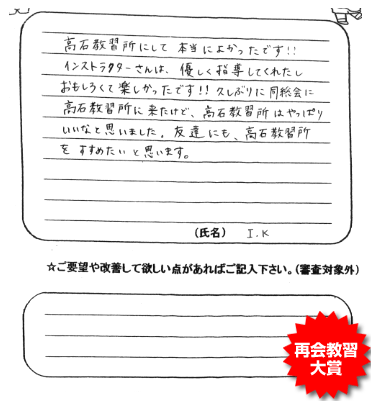 高石教習所にして本当によかったです!!
インストラクターさんは、優しく指導してくれたし
おもしろくて楽しかったです!! 久しぶりに同総会に
高石教習所に来たけど、高石教習所はやっぱり
いいなと思いました。友達にも、高石教習所
をすすめたいと思います。
(氏名) I.K
☆ご要望や改善して欲しい点があればご記入下さい。(審査対象外)
再会教習
大賞